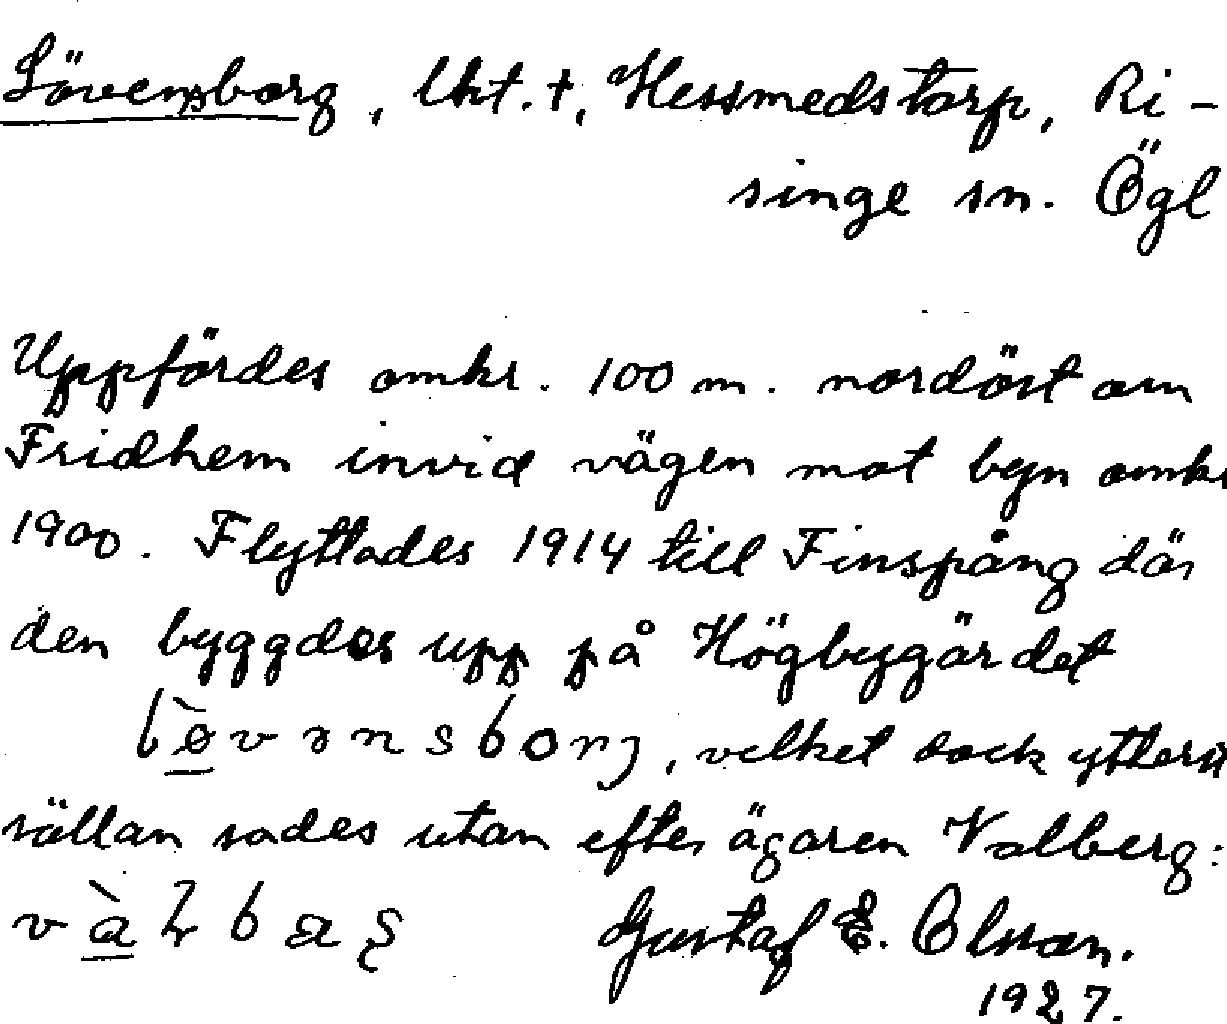 Lövensborg, lht. t, Hessmedstorp, Ri-
singe sn. Ögl
Uppfördes omkr. 100 m. nordöst om
Fridhem invid vägen mot byn omkr
1900. Flyttades 1914 till Finspång där
den byggdes upp på Högbygärdet
, vilket dock ytterst
sällan sades utan efter ägaren Valberg:
Gustaf E. Olsson.
1927.